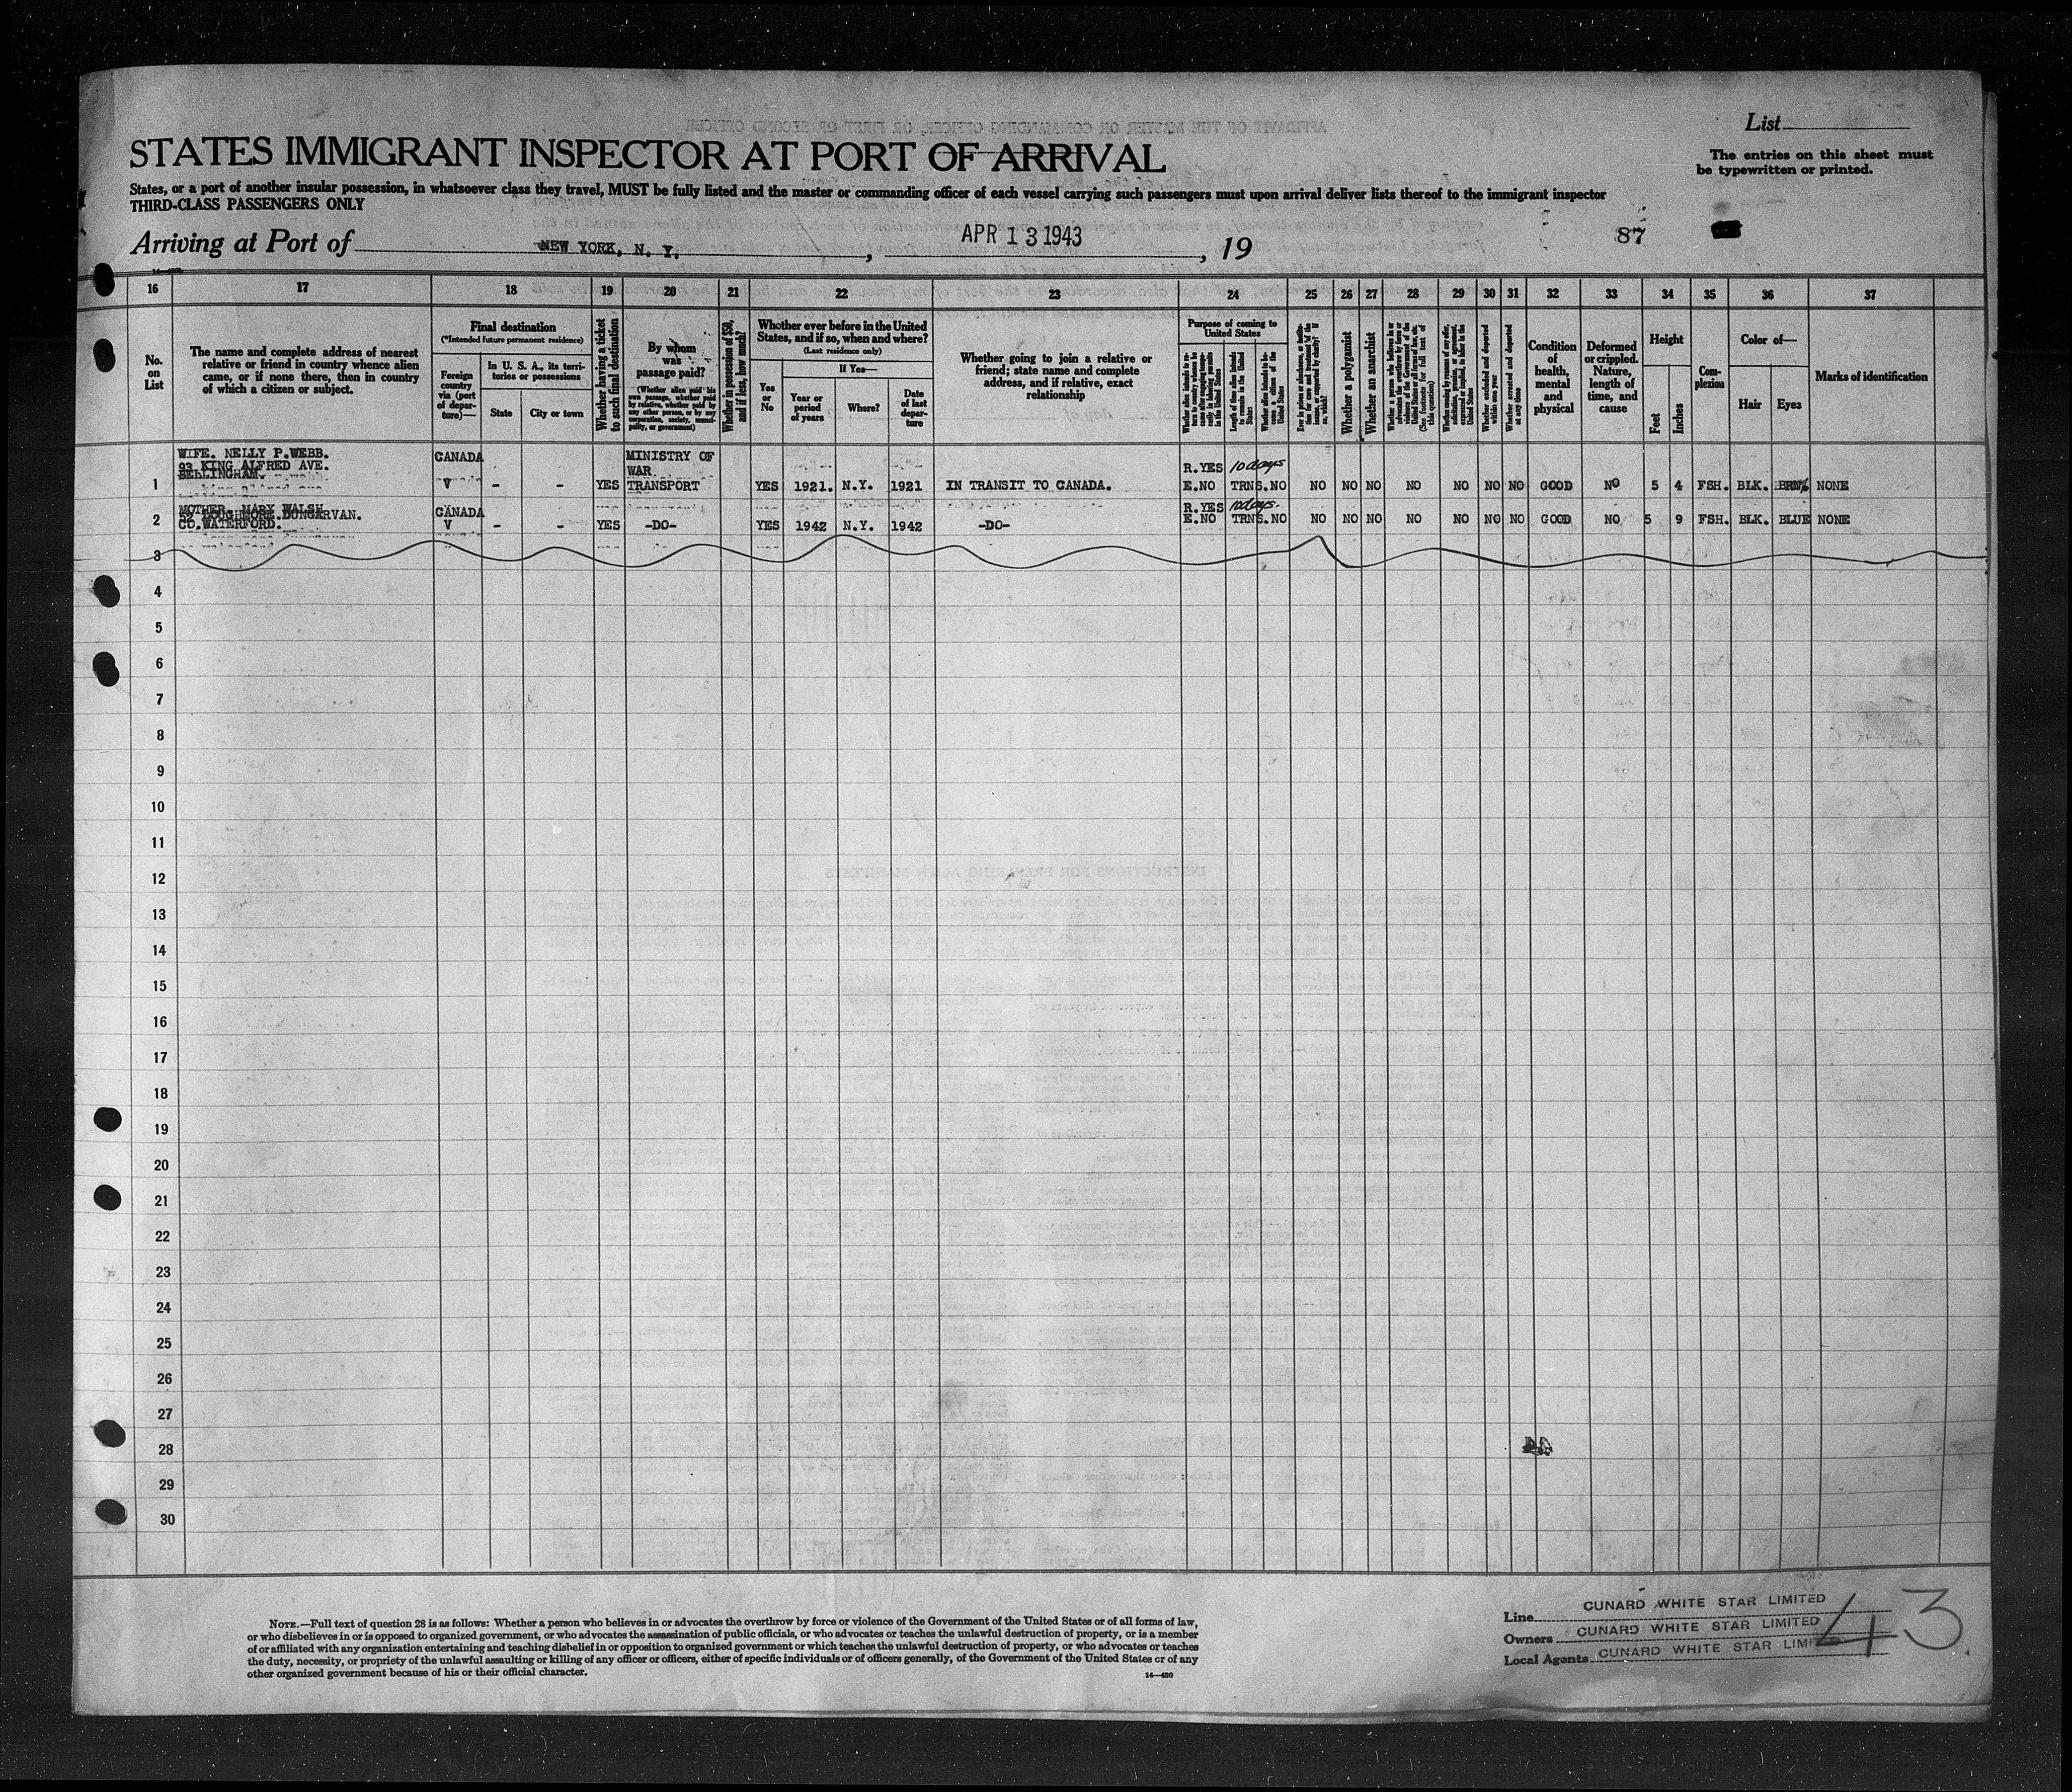 List
STATES IMMIGRANT INSPECTOR AT PORT OF ARRIVAL
The entries on this sheet must
be typewritten or printed.
States, or a port of another insular possession, in whatsoever class they travel, MUST be fully listed and the master or commanding officer of each vessel carrying such passengers must upon arrival deliver lists thereof to the immigrant inspector
THIRD-CLASS PASSENGERS ONLY
Arriving at Port of NEW YORK, N. Y., APR 13 1943, 19 87
16 17 18 19 20 21 22 23 24 25 26 27 28 29 30 31 32 33 34 35 36 37
No. on List
The name and complete address of nearest
relative or friend in country whence alien
came, or if none there, then in country
of which a citizen or subject.
Final destination
(*Intended future permanent residence)
Foreign country via (port of departure)—
In U. S. A., its territories or possessions
State
City or town
Whether having a ticket to such final destination
By whom was passage paid?
(Whether alien paid his own passage, whether paid by relative, whether paid by any other person, or by any corporation, society, municipality, or government)
Whether in possession of $50, and if less, how much?
Whether ever before in the United
States, and if so, when and where?
(Last residence only)
Yes or No
If Yes—
Year or period of years
Where?
Date of last departure
Whether going to join a relative or
friend; state name and complete
address, and if relative, exact
relationship
Purpose of coming to
United States
Whether a polygamist
Whether an anarchist
Whether excluded and deported within one year
Whether arrested and deported at any time
Condition of health, mental and physical
Deformed or crippled. Nature, length of time, and cause
Height
Feet
Inches
Complexion
Color of—
Hair
Eyes
Marks of identification
WIFE. NELLY P.WEBB.
93 KING ALFRED AVE.
BELLINGHAM.
CANADA
MINISTRY OF
WAR
R.YES 10 days
1 V - - YES TRANSPORT YES 1921. N.Y. 1921 IN TRANSIT TO CANADA. E.NO TRNS. NO NO NO NO NO NO NO NO GOOD NO 5 4 FSH. BLK. BRN. NONE
MOTHER. MARY WALSH
LOUGHMORE DUNGARVAN.
CO.WATERFORD.
CANADA
R.YES 10 days.
2 V - - YES -DO- YES 1942 N.Y. 1942 -DO- E.NO TRNS. NO NO NO NO NO NO NO NO GOOD NO 5 9 FSH. BLK. BLUE NONE
3
4
5
6
7
8
9
10
11
12
13
14
15
16
17
18
19
20
21
22
23
24
25
26
27
28
29
30
NOTE.—Full text of question 28 is as follows: Whether a person who believes in or advocates the overthrow by force or violence of the Government of the United States or of all forms of law,
or who disbelieves in or is opposed to organized government, or who advocates the assassination of public officials, or who advocates or teaches the unlawful destruction of property, or is a member
of or affiliated with any organization entertaining and teaching disbelief in or opposition to organized government or which teaches the unlawful destruction of property, or who advocates or teaches
the duty, necessity, or propriety of the unlawful assaulting or killing of any officer or officers, either of specific individuals or of officers generally, of the Government of the United States or of any
other organized government because of his or their official character.
14—430
Line CUNARD WHITE STAR LIMITED
Owners CUNARD WHITE STAR LIMITED
Local Agents CUNARD WHITE STAR LIMITED
43